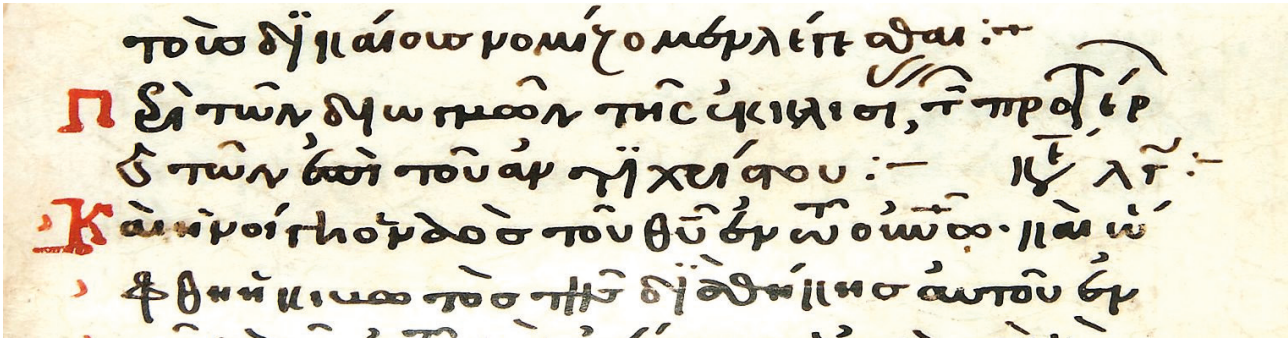 τοῖς δϊκαίοις νομίζομεν λέπεσθαι :–
Περὶ τῶν διωγμῶν τῆς ἐκκλησί, τ̃ προτέρ
ϗ τῶν ἐπὶ τοῦ ἀντϊχρίστου :–
Καὶ ἠνοίγη ὁ ναὸς τοῦ θ̅υ̅ ἐν τῶ οὐν̅ω̅· καὶ ὤ
φθη ἡ κιβωτὸς τῆς δϊαθήκης αὐτοῦ ἐν